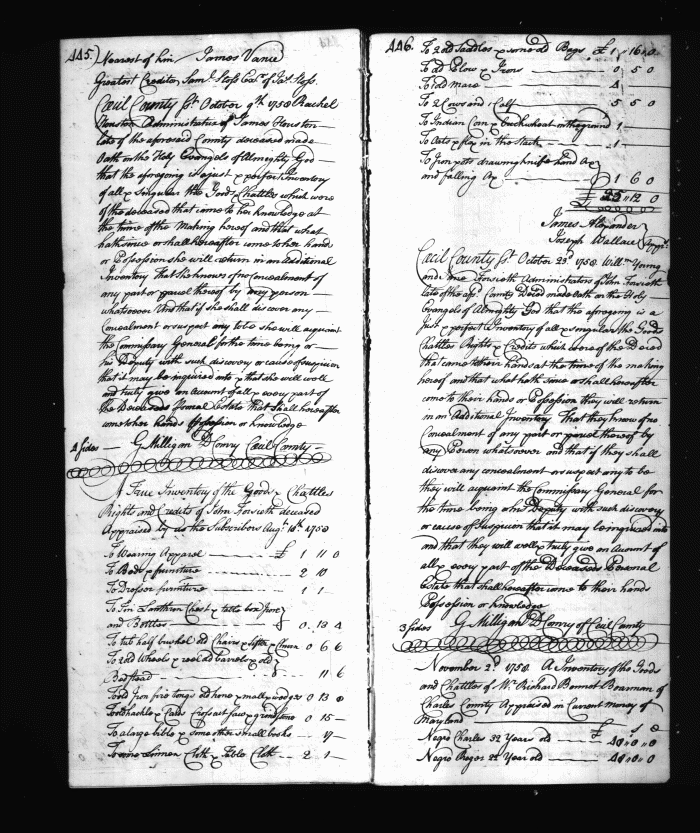 445.) Nearest of kin James Vance
Greatest Creditor Saml.
Cecil County Sst. October 9th. 1758 Rachel
Houston Administratrix of James Houston
late of the aforesaid County deceased made
Oath on the Holy Evangels of Almighty God
that the aforegoing is a just & perfect Inventory
of all & Singular the Goods Chattles which were
of the deceased that come to her knowledge at
the time of the Making hereof and that what
hath since or shall hereafter come to her hands
or Possession she will return in an additional
Inventory That she knows of no concealment of
any part or parcel thereof by any person
whatsoever And that if she shall discover any
Concealment or suspect any to be she will acquaint
the Commissary General for the time being or
his Deputy with such discovery or cause of suspicion
that it may be inquired into & that she will well
and truly give an Account of all & every part of
the Deceaseds personal Estate that shall hereafter
come to her hands Possession or knowledge
4 Sides G Milligan DComry Cecil County
A True Inventory of the Goods Chattles
Rights and Credits of John Forsieth deceased
Appraised by us the Subscribers Augt. 10th. 1758
To Wearing Apparel £ 1 11 0
To Beds & furniture 2 10
To Dresser furniture 1 1
To Tin Lanthron Chest & table
and Bottles 0 13 4
To tub half bushel old Chairs & 0 6 6
To 2 old Wheels & reel old Barrels & old
Bedstead 11 6
To old Iron fire tongs old hone & wedges 0 13 0
To old hackle & Cards Crosscut saw & grindstone 0 15
To a large bible & some other small books 17
To some Linnen Cloth & Table Cloth 2 1
446. To 2 old Saddles & some old Bags £ 1 16 0
To old Plow & Irons 0 5 0
To old Mare 4
To 2 Cows and Calf 5 5 0
To Indian Corn & buckwheat on the ground 1
To Oats & flax in the Stack 1
To Iron pots drawing knife hand Ax
and falling Ax 1 6 0
£ 25 12 0
James Alexander
Joseph Wallace Apprs.
Cecil County Sst. October 23d. 1758. Willm. Young
and Forsieth Administrators of John Forsieth
late of the afd. County Deced made oath on the Holy
Evangels of Almighty God that the aforegoing is a
just & perfect Inventory of all & singular the Goods
Chattles Rights & Credits which were of the Deced
that came to their hands at the time of the making
hereof and that what hath since or shall hereafter
come to their hands or Possession they will return
in an Additional Inventory That they know of no
Concealment of any part or parcel thereof by
any Person whatsoever and that if they shall
discover any concealment or suspect any to be
they will acquaint the Commissary General for
the time being or his Deputy with such discovery
or cause of Suspicion that it may be inquired into
and that they will well & truly give an Account of
all & every part of the Deceaseds Personal
Estate that shall hereafter come to their hands
Possession or knowledge
3 Sides G Milligan DComry of Cecil County
November 2d. 1758. A Inventory of the Goods
and Chattles of Mr. Richard Bennet Boarman of
Charles County Appraised in Current money of
Maryland £ s d
Negro Charles 32 Years old 40 0 0
Negro 22 Years old 40 0 0